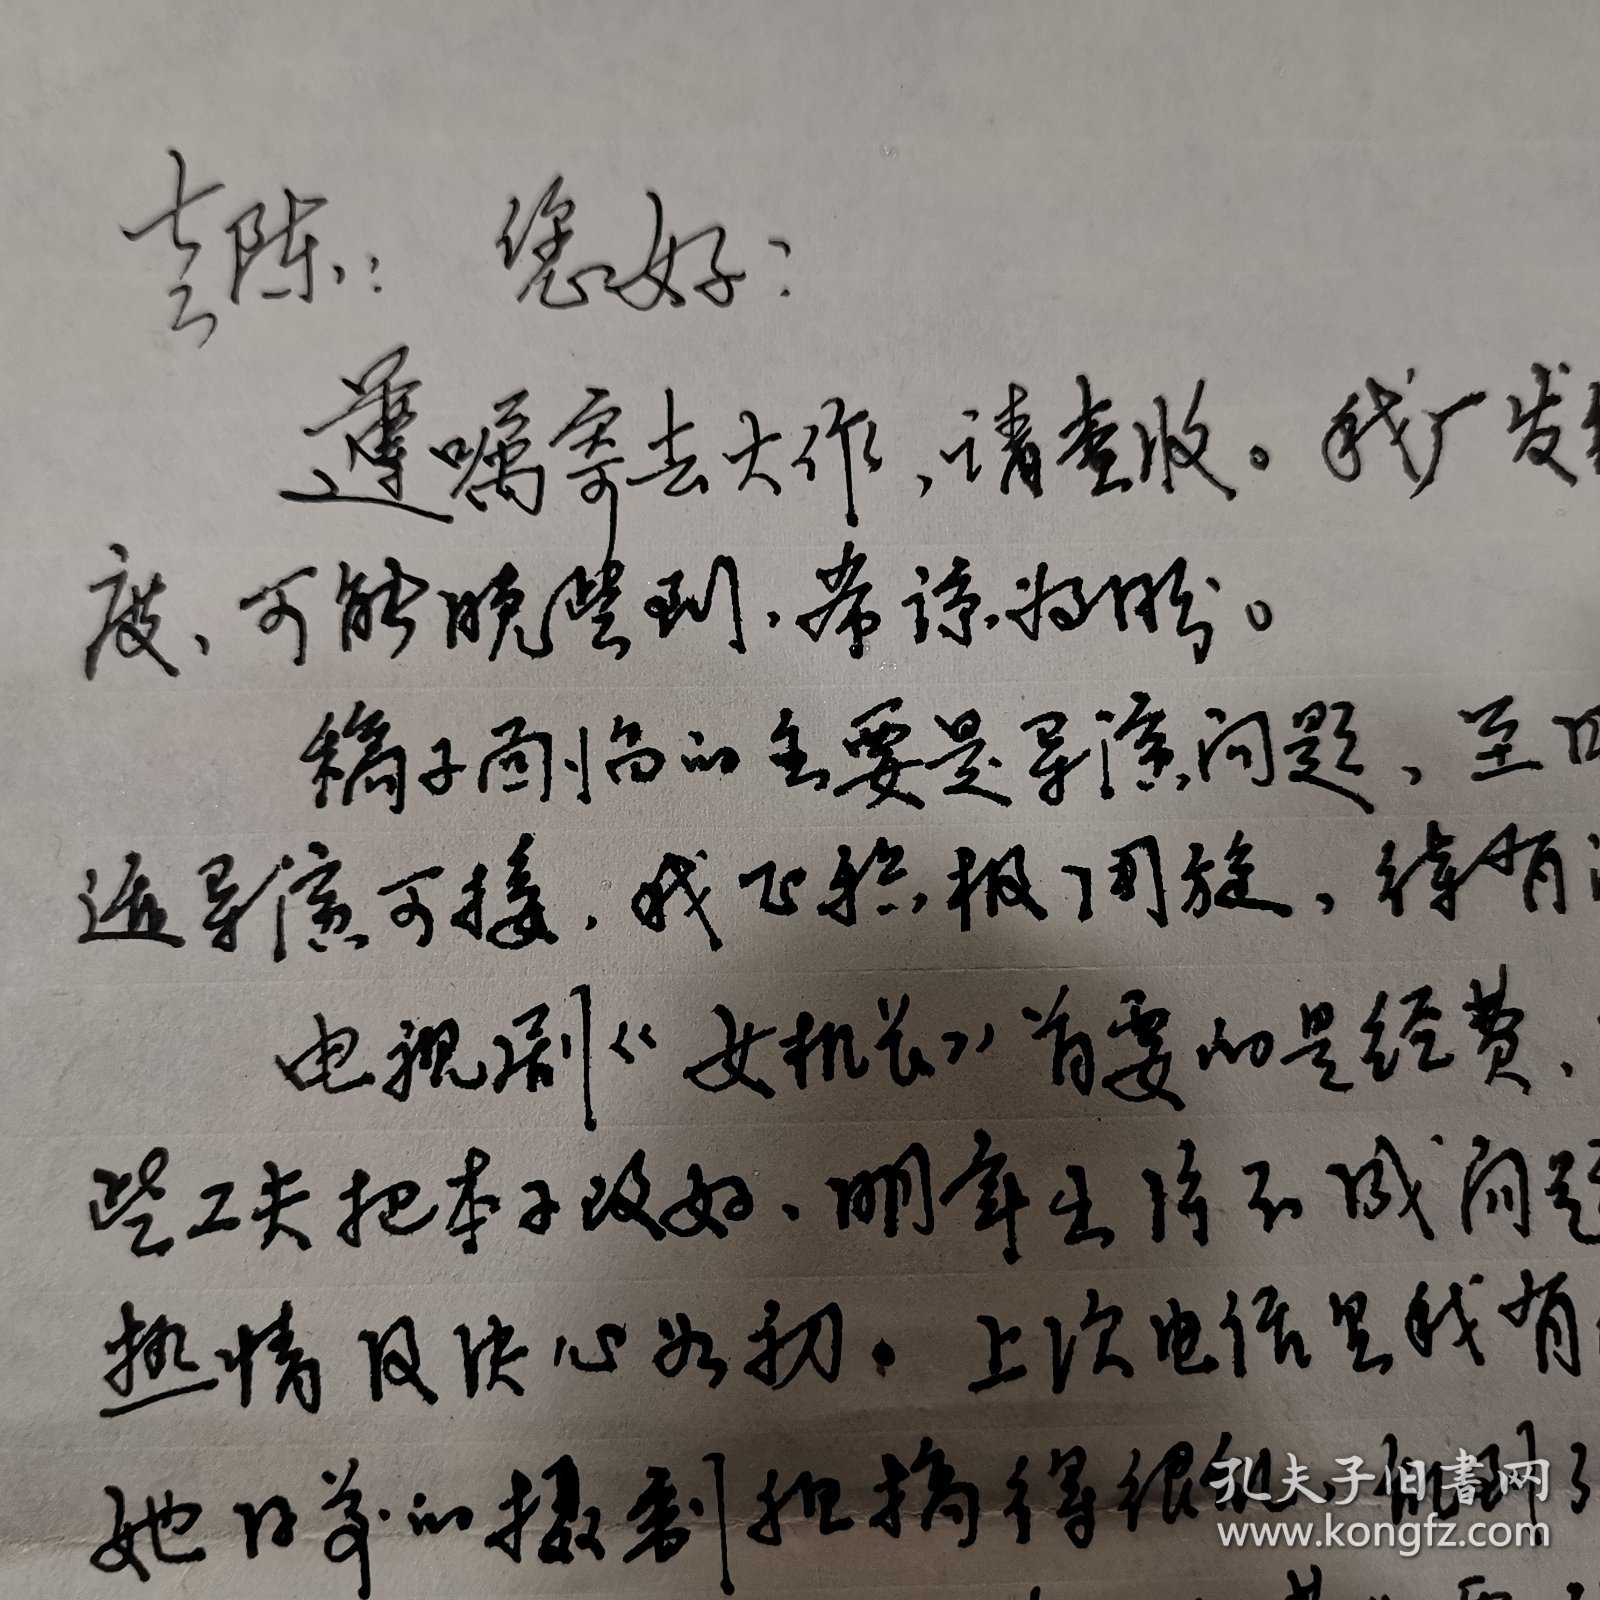 陈: 您好:
遵嘱寄去大作,请查收。我厂发
度、可能晚些到,希谅为盼。
稿子面临的主要是导演问题、至
适导演可接,我正积极周旋,待有
电视剧《女机长》首要的是经费、
些工夫把本子改好、明年上阵不成问题
热情及决心如初。上次电话里我有
她日夜的摄制担搞得很
孔夫子旧書网
www.kongfz.com